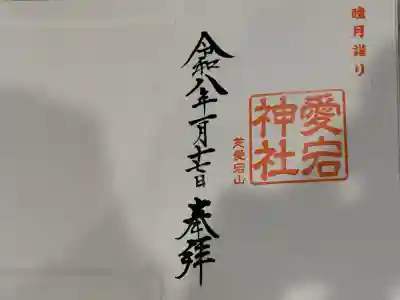 睦月詣り
愛宕
神社
芝愛宕山
令和八年一月十七日
奉拝